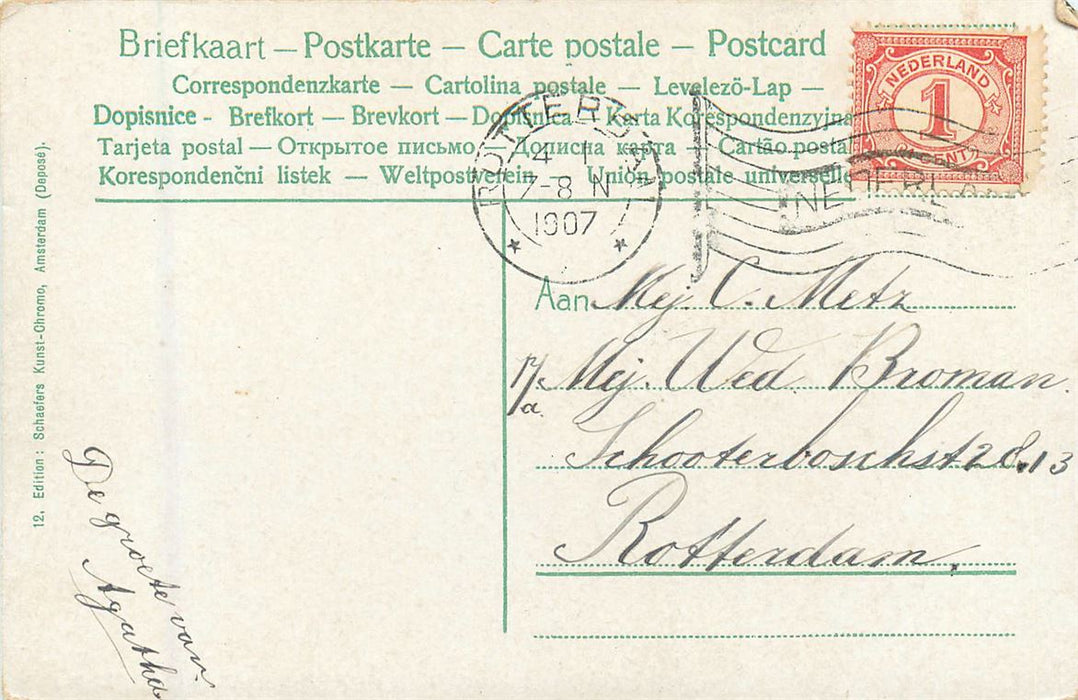 Briefkaart — Postkarte — Carte postale — Postcard
Correspondenzkarte — Cartolina postale — Levelezö-Lap —
Dopisnice - Brefkort — Brevkort — Dopisnica — Karta Korespondenzyjna
Tarjeta postal — Открытое письмо — Дописна карта — Cartão postal
Korespondenčni listek — Weltpostverein — Union postale universelle
NEDERLAND
1
(CENT)
ROTTERDAM
4 1
7-8 N
1907
NEDERL
Aan Mej. C. Metz
p/a Mej. Wed Broman.
Schooterboschst 28.13
Rotterdam.
De groete van
Agatha
12, Edition: Schaefers Kunst-Chromo, Amsterdam (Deposé).